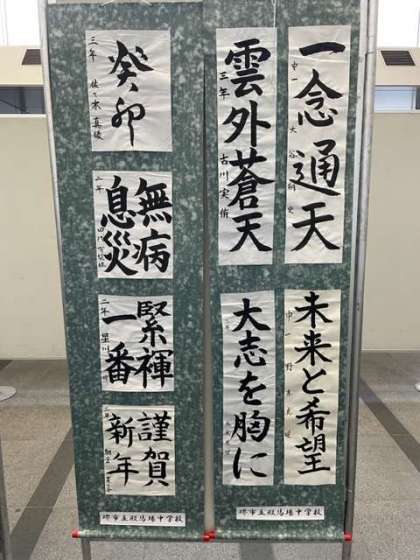 一念通天
中一
雲外蒼天
三年 古川実侑
未来と希望
中一
大志を胸に
堺市立殿馬場中学校
癸卯
三年 佐々木真綾
無病
息災
二年
緊褌
一番
二年 星川
謹賀
新年
堺市立殿馬場中学校